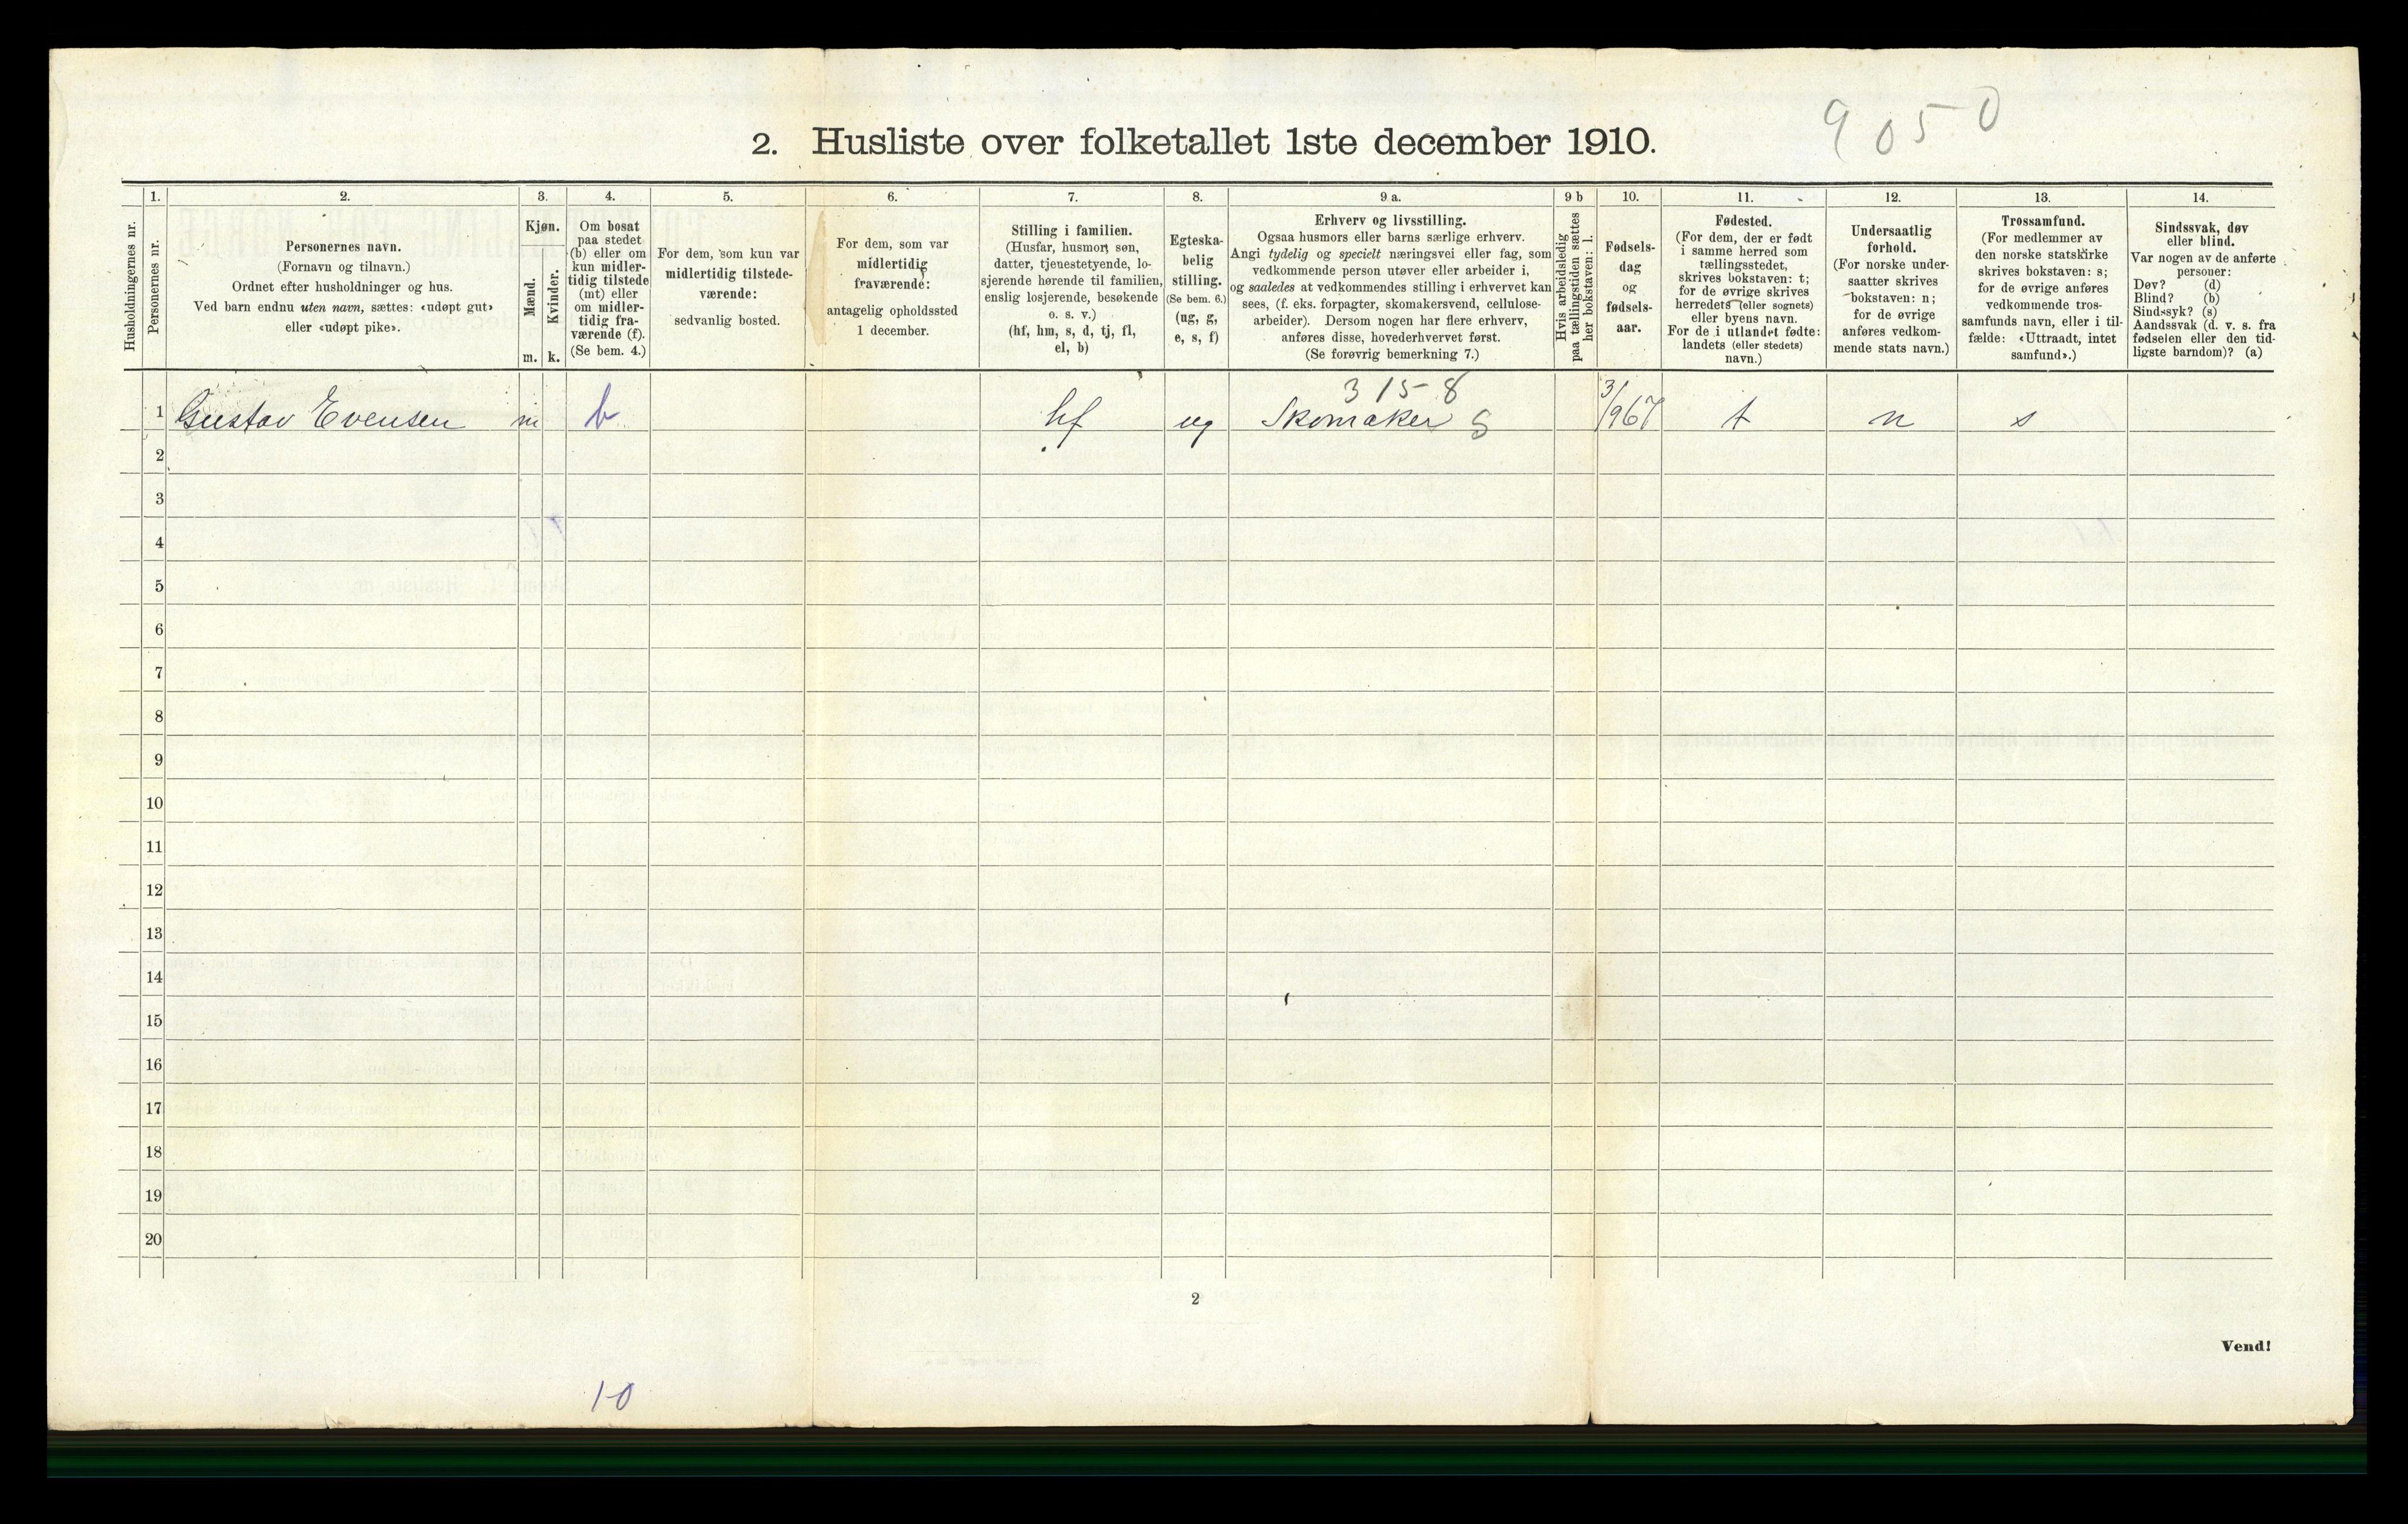 9 0 5 0
2. Husliste over folketallet 1ste december 1910.
Husholdningernes nr.
1.
Personernes nr.
2.
Personernes navn.
(Fornavn og tilnavn.)
Ordnet efter husholdninger og hus.
Ved barn endnu uten navn, sættes: «udøpt gut»
eller «udøpt pike».
3.
Kjøn.
Mænd.
m.
Kvinder.
k.
4.
Om bosat
paa stedet
(b) eller om
kun midler-
tidig tilstede
(mt) eller
om midler-
tidig fra-
værende (f).
(Se bem. 4.)
5.
For dem, som kun var
midlertidig tilstede-
værende:
sedvanlig bosted.
6.
For dem, som var
midlertidig
fraværende:
antagelig opholdssted
1 december.
7.
Stilling i familien.
(Husfar, husmor, søn,
datter, tjenestetyende, lo-
sjerende hørende til familien,
enslig losjerende, besøkende
o. s. v.)
(hf, hm, s, d, tj, fl,
el, b)
8.
Egteska-
belig
stilling.
(Se bem. 6.)
(ug, g,
e, s, f)
9 a.
Erhverv og livsstilling.
Ogsaa husmors eller barns særlige erhverv.
Angi tydelig og specielt næringsvei eller fag, som
vedkommende person utøver eller arbeider i,
og saaledes at vedkommendes stilling i erhvervet kan
sees, (f. eks. forpagter, skomakersvend, cellulose-
arbeider). Dersom nogen har flere erhverv,
anføres disse, hovederhvervet først.
(Se forøvrig bemerkning 7.)
9 b
Hvis arbeidsledig
paa tællingstiden sættes
her bokstaven: l.
10.
Fødsels-
dag
og
fødsels-
aar.
11.
Fødested.
(For dem, der er født
i samme herred som
tællingsstedet,
skrives bokstaven: t;
for de øvrige skrives
herredets (eller sognets)
eller byens navn.
For de i utlandet fødte:
landets (eller stedets)
navn.)
12.
Undersaatlig
forhold.
(For norske under-
saatter skrives
bokstaven: n;
for de øvrige
anføres vedkom-
mende stats navn.)
13.
Trossamfund.
(For medlemmer av
den norske statskirke
skrives bokstaven: s;
for de øvrige anføres
vedkommende tros-
samfunds navn, eller i til-
fælde: «Uttraadt, intet
samfund».)
14.
Sindssvak, døv
eller blind.
Var nogen av de anførte
personer:
Døv? (d)
Blind? (b)
Sindssyk? (s)
Aandssvak (d. v. s. fra
fødselen eller den tid-
ligste barndom)? (a)
3 15-8
1 Gustav Evensen m b hf ug Skomaker S 3/967 t n s
2
3
4
5
6
7
8
9
10
11
12
13
14
15
16
17
18
19
20
2
Vend!
1-0